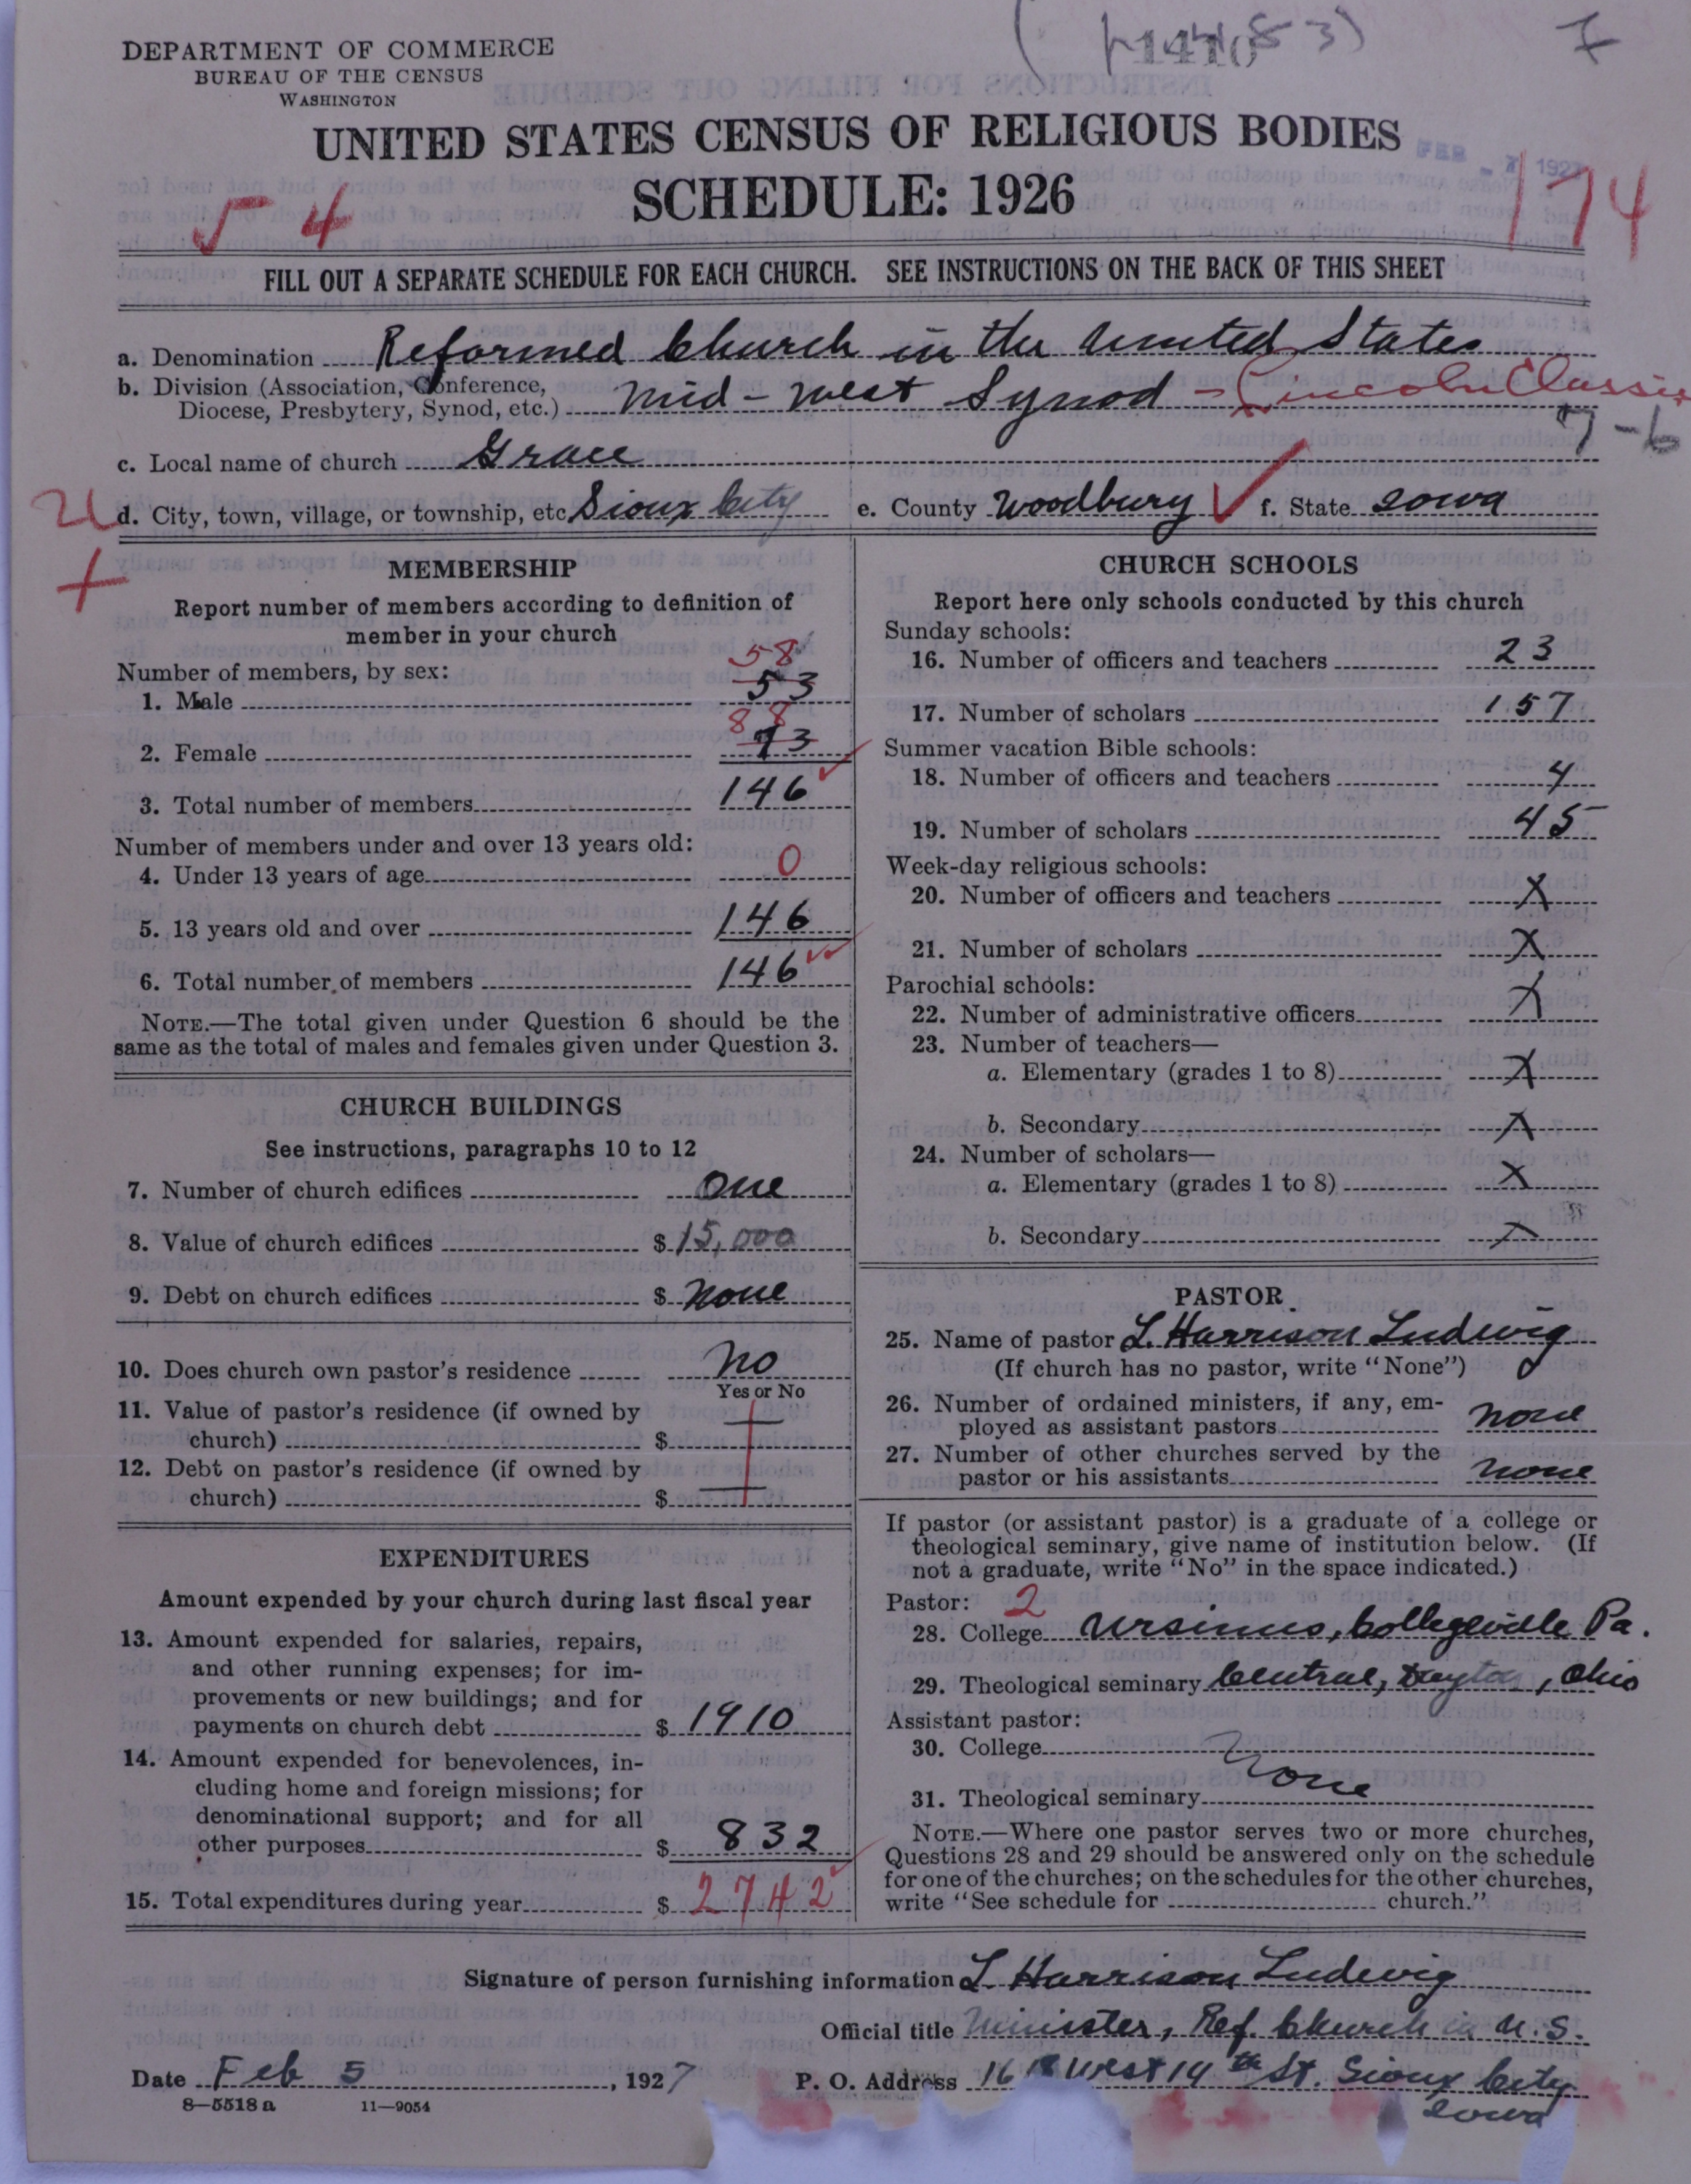 DEPARTMENT OF COMMERCE
BUREAU OF THE CENSUS
WASHINGTON
7
UNITED STATES CENSUS OF RELIGIOUS BODIES
SCHEDULE: 1926
FEB - 7 1927
54
174
FILL OUT A SEPARATE SCHEDULE FOR EACH CHURCH. SEE INSTRUCTIONS ON THE BACK OF THIS SHEET
a. Denomination Reformed Church in the United States
b. Division (Association, Conference,
Diocese, Presbytery, Synod, etc.) Mid-West Synod - Lincoln Classis
7-6
c. Local name of church Grace
d. City, town, village, or township, etc. Sioux City e. County Woodbury ✓ f. State Iowa
MEMBERSHIP
Report number of members according to definition of
member in your church
Number of members, by sex:
58
1. Male 53
88
2. Female 93
3. Total number of members 146
Number of members under and over 13 years old:
4. Under 13 years of age 0
5. 13 years old and over 146
6. Total number of members 146
NOTE.—The total given under Question 6 should be the
same as the total of males and females given under Question 3.
CHURCH BUILDINGS
See instructions, paragraphs 10 to 12
7. Number of church edifices One
8. Value of church edifices $ 15,000
9. Debt on church edifices $ None
10. Does church own pastor's residence No
Yes or No
11. Value of pastor's residence (if owned by
church) $
12. Debt on pastor's residence (if owned by
church) $
EXPENDITURES
Amount expended by your church during last fiscal year
13. Amount expended for salaries, repairs,
and other running expenses; for im-
provements or new buildings; and for
payments on church debt $ 1910
14. Amount expended for benevolences, in-
cluding home and foreign missions; for
denominational support; and for all
other purposes $ 832
15. Total expenditures during year $ 2742
CHURCH SCHOOLS
Report here only schools conducted by this church
Sunday schools:
16. Number of officers and teachers 23
17. Number of scholars 157
Summer vacation Bible schools:
18. Number of officers and teachers 4
19. Number of scholars 45
Week-day religious schools:
20. Number of officers and teachers X
21. Number of scholars X
Parochial schools:
22. Number of administrative officers X
23. Number of teachers—
a. Elementary (grades 1 to 8) X
b. Secondary X
24. Number of scholars—
a. Elementary (grades 1 to 8) X
b. Secondary X
PASTOR
25. Name of pastor L. Harrison Ludwig
(If church has no pastor, write "None")
26. Number of ordained ministers, if any, em-
ployed as assistant pastors none
27. Number of other churches served by the
pastor or his assistants none
If pastor (or assistant pastor) is a graduate of a college or
theological seminary, give name of institution below. (If
not a graduate, write "No" in the space indicated.)
Pastor: 2
28. College Ursinus, Collegeville Pa.
29. Theological seminary Central, Dayton, Ohio
Assistant pastor:
30. College
None
31. Theological seminary
NOTE.—Where one pastor serves two or more churches,
Questions 28 and 29 should be answered only on the schedule
for one of the churches; on the schedules for the other churches,
write "See schedule for church."
Signature of person furnishing information L. Harrison Ludwig
Official title Minister, Ref. Church in U.S.
Date Feb 5, 1927 P. O. Address 1618 West 14th St. Sioux City
Iowa
8—5518 a 11—9054